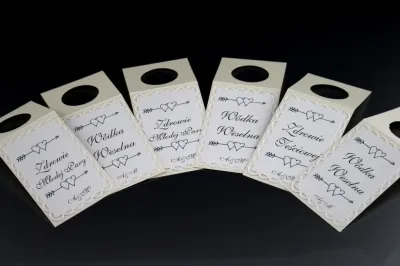 Zdrowie
Młodej Pary
A&M
Wódka
Weselna
A&M
Zdrowie
Młodej Pary
A&M
Wódka
Weselna
A&M
Zdrowie
Teściowej
A&M
Wódka
Weselna
A&M